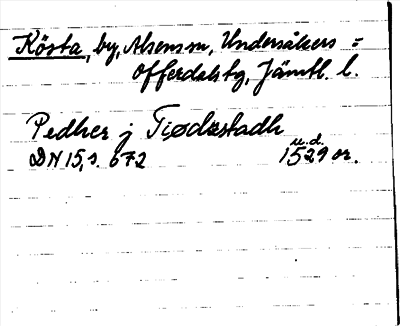 Kösta, by, Alsens sn, Undersåkers =
Offerdals tg, Jämtl. l.
Pedher j Tiødestadh
u.d.
DN 15, s. 672 1529 or.